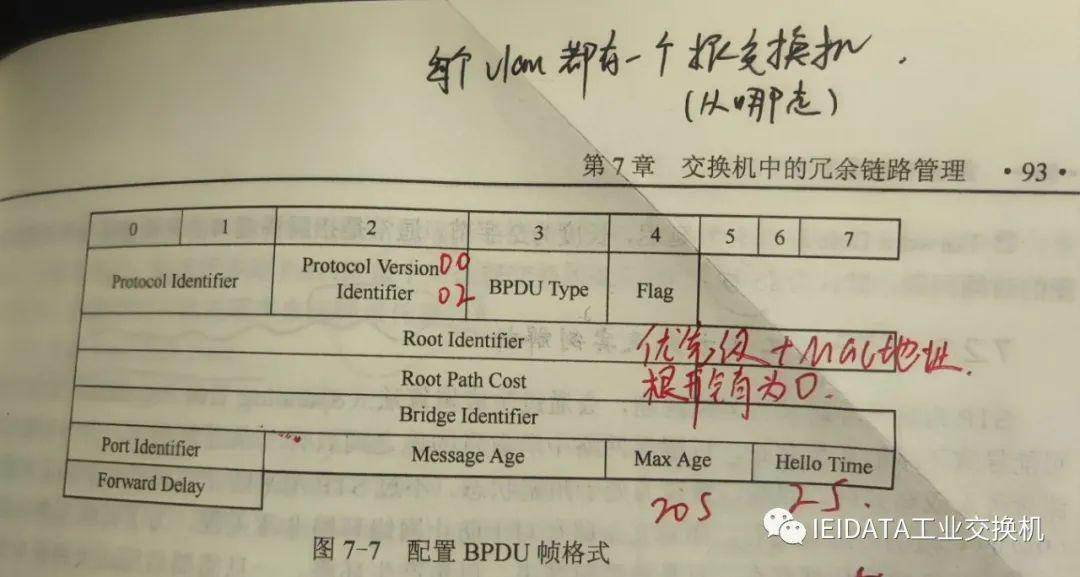 每个vlan都有一个根交换机.
(从哪走)
第7章 交换机中的冗余链路管理 ·93·
0 1 2 3 4 5 6 7
Protocol Identifier
Protocol Version 00
Identifier 02
BPDU Type
Flag
Root Identifier 优先级+MAC地址.
Root Path Cost 根开销为0.
Bridge Identifier
Port Identifier Message Age Max Age Hello Time
Forward Delay
20S 2S.
IEIDATA工业交换机
图 7-7 配置 BPDU 帧格式